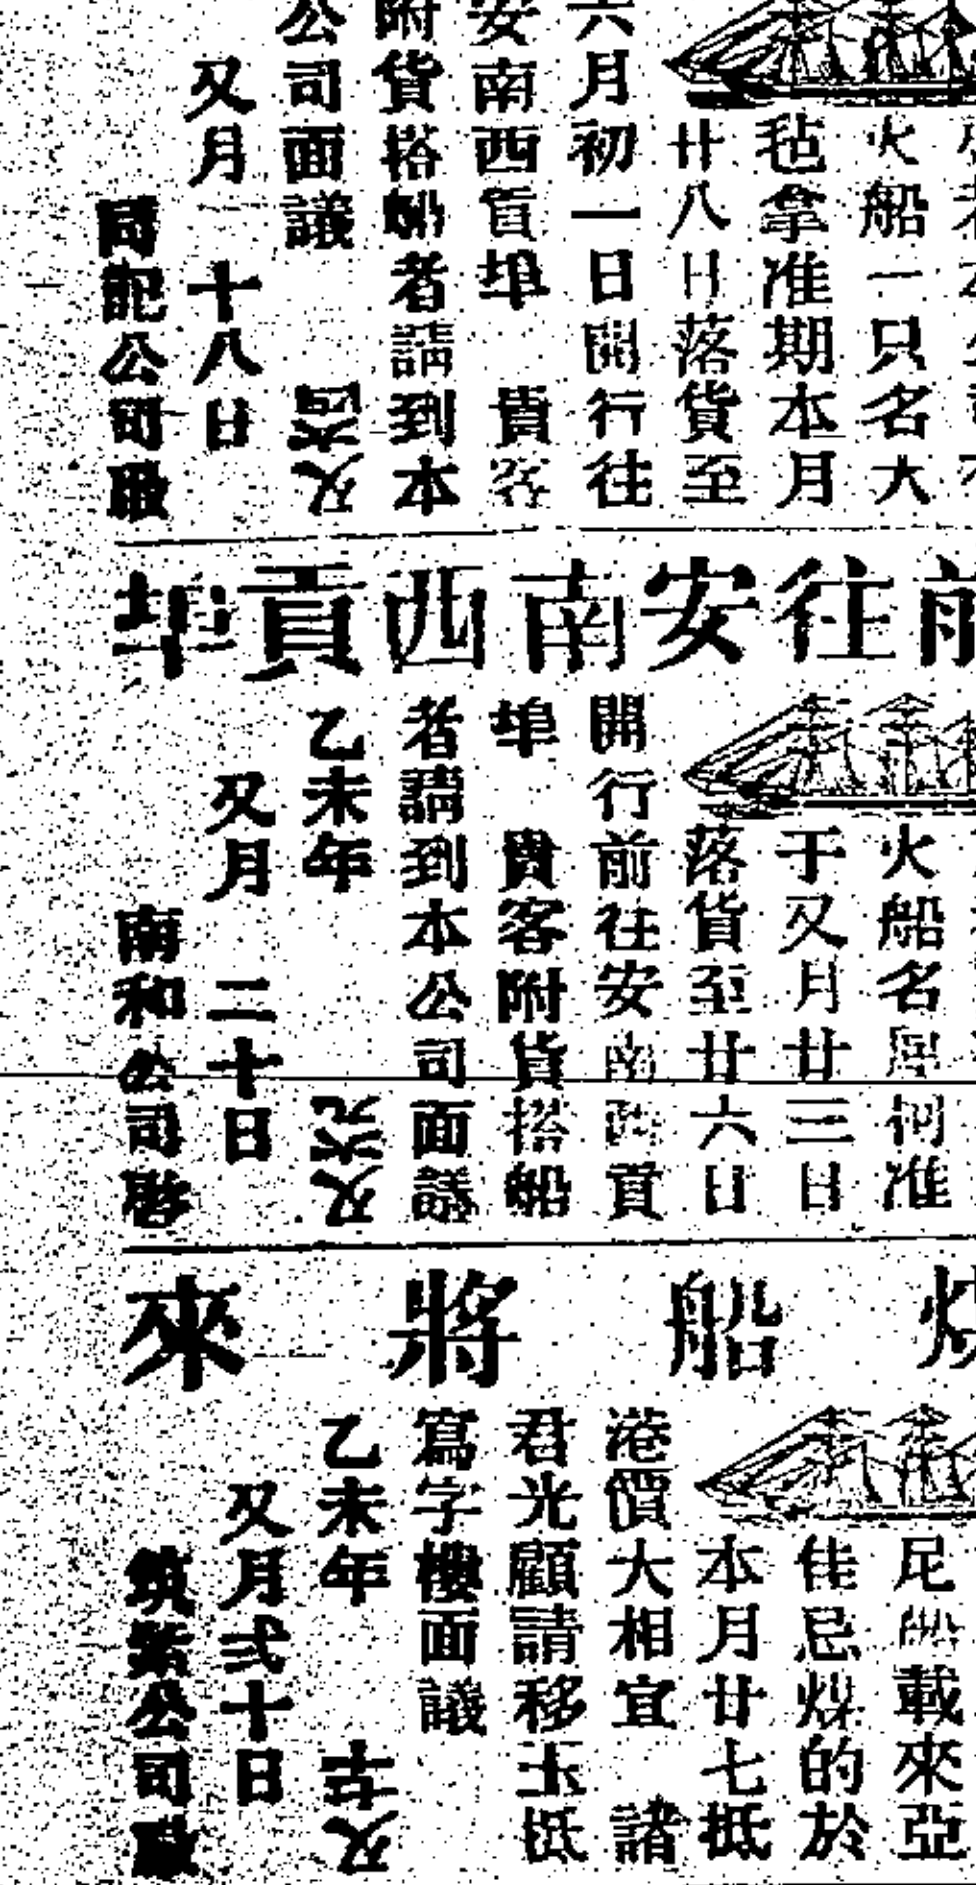 火船一只名大
毡拿准期本月
廿八日落貨至
六月初一日開行往
安南西貢埠 貴客
附貨搭船者請到本
公司面議
又月 十八日
記公司
前往安南西貢埠
火船名 准
于又月廿三日
落貨至廿六日
開行前往安南西貢
埠 貴客附貨搭船
者請到本公司面議
乙未年
又月 二十日
南和公司啓
船將來
尼 載來亞
佳忌煤的於
本月廿七抵
港價大相宜 諸
君光顧請移玉抵
寫字樓面議
乙未年
又月弍十日
公司